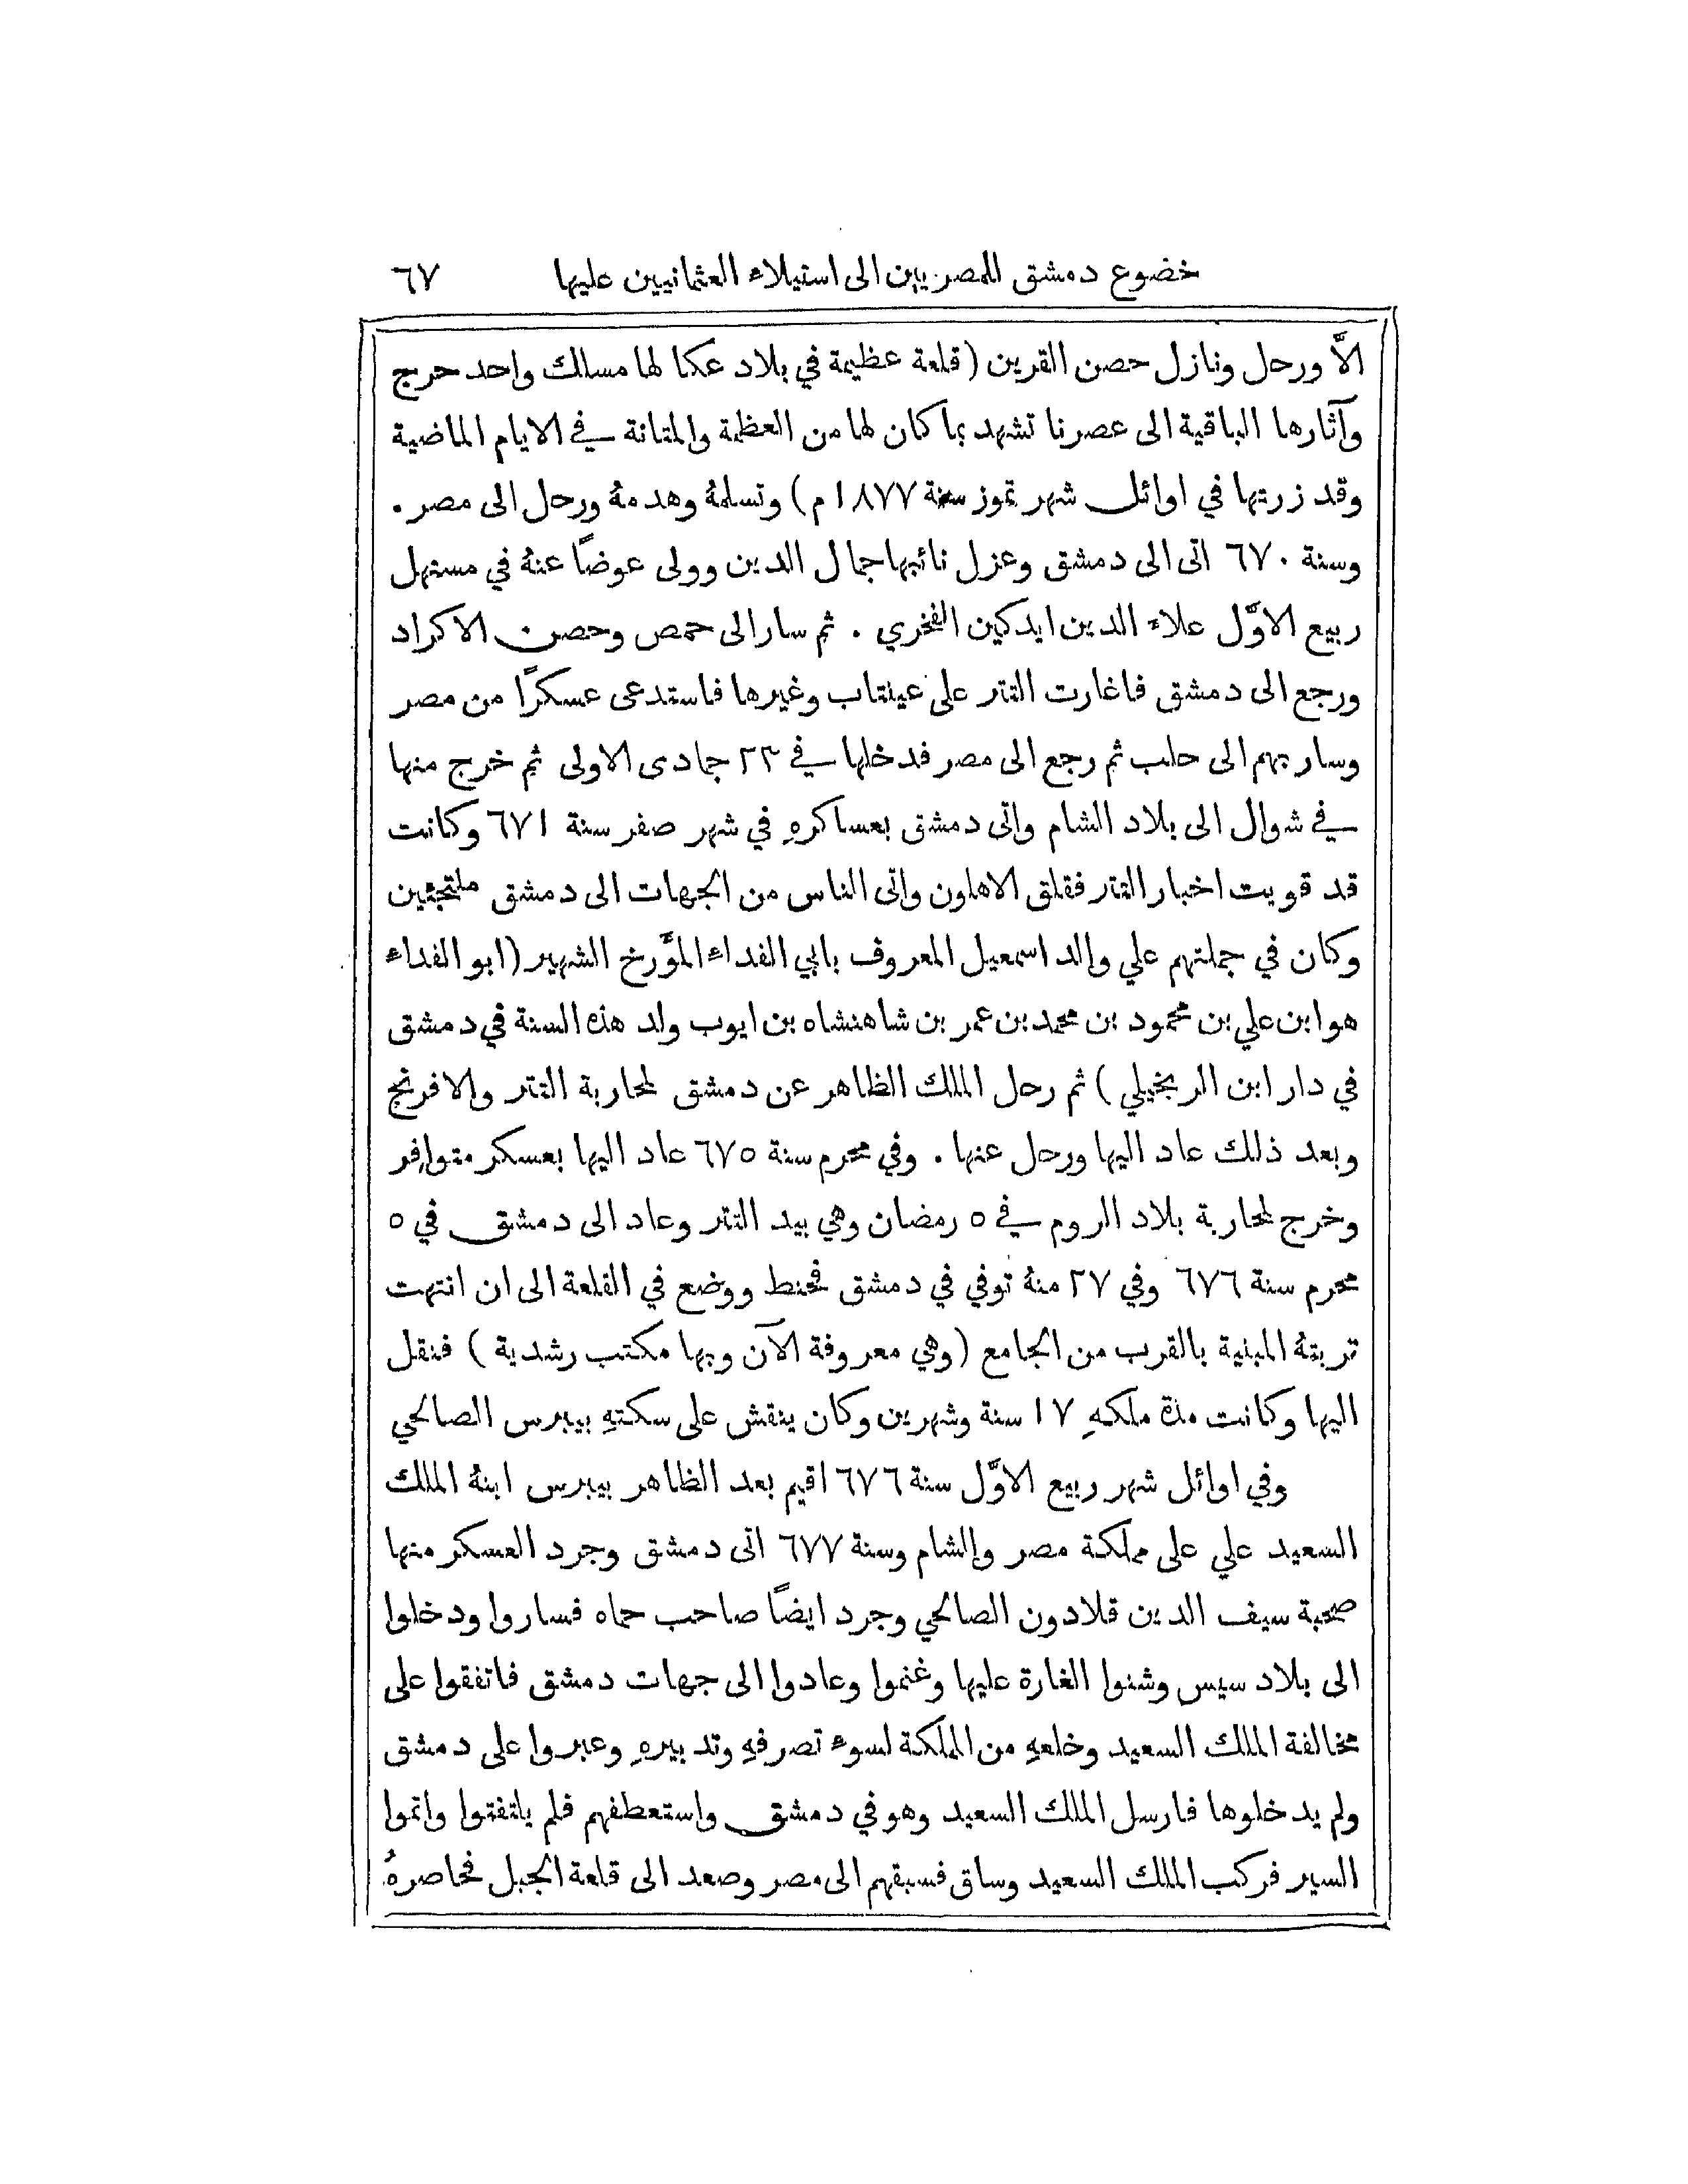 خضوع دمشق للمصريين الى استيلاء العثمانيين عليها ٦٧
الاَّ ورحل ونازل حصن القرين (قلعة عظيمة في بلاد عكا لها مسالك واحد حرج
وآثارها الباقية الى عصرنا تشهد بما كان لها من العظمة والمتانة في الايام الماضية
وقد زرتها في اوائل شهر تموز سنة ١٨٧٧ م) وتسلمهُ وهدمهُ ورحل الى مصر.
وسنة ٦٧٠ اتى الى دمشق وعزل نائبها جمال الدين وولى عوضاً عنهُ في مستهل
ربيع الاوَّل علاء الدين ايدكين الفخري. ثم سار الى حمص وحصن الاكراد
ورجع الى دمشق فاغارت التتر على عينتاب وغيرها فاستدعى عسكرًا من مصر
وسار بهم الى حلب ثم رجع الى مصر فدخلها في ٢٣ جمادى الاولى ثم خرج منها
في شوال الى بلاد الشام واتى دمشق بعساكرهِ في شهر صفر سنة ٦٧١ وكانت
قد قويت اخبار التتر فقلق الاهلون واتى الناس من الجهات الى دمشق ملتجئين
وكان في جملتهم علي والد اسمعيل المعروف بابي الفداء المؤَّرخ الشهير (ابو الفداء
هو ابن علي بن محمود بن محمد بن عمر بن شاهنشاه بن ايوب ولد هذه السنة في دمشق
في دار ابن الربخيلي) ثم رحل الملك الظاهر عن دمشق لمحاربة التتر والافرنج
وبعد ذلك عاد اليها ورحل عنها. وفي محرم سنة ٦٧٥ عاد اليها بعسكر متوافر
وخرج لمحاربة بلاد الروم في ٥ رمضان وهي بيد التتر وعاد الى دمشق في ٥
محرم سنة ٦٧٦ وفي ٢٧ منهُ توفي في دمشق فحنط ووضع في القلعة الى ان انتهت
تربتهُ المبنية بالقرب من الجامع (وهي معروفة الآن وبها مكتب رشدية) فنقل
اليها وكانت مدة ملكهِ ١٧ سنة وشهرين وكان ينقش على سكتهِ بيبرس الصالحي
وفي اوائل شهر ربيع الاوَّل سنة ٦٧٦ اقيم بعد الظاهر بيبرس ابنهُ الملك
السعيد علي على مملكة مصر والشام وسنة ٦٧٧ اتى دمشق وجرد العسكر منها
صحبة سيف الدين قلادون الصالحي وجرد ايضاً صاحب حماه فساروا ودخلوا
الى بلاد سيس وشنوا الغارة عليها وغنموا وعادوا الى جهات دمشق فاتفقوا على
مخالفة الملك السعيد وخلعهِ من المملكة لسوء تصرفهِ وتدبيرهِ وعبروا على دمشق
ولم يدخلوها فارسل الملك السعيد وهو في دمشق واستعطفهم فلم يلتفتوا واتموا
السير فركب الملك السعيد وساق فسبقهم الى مصر وصعد الى قلعة الجبل فحاصرهُ